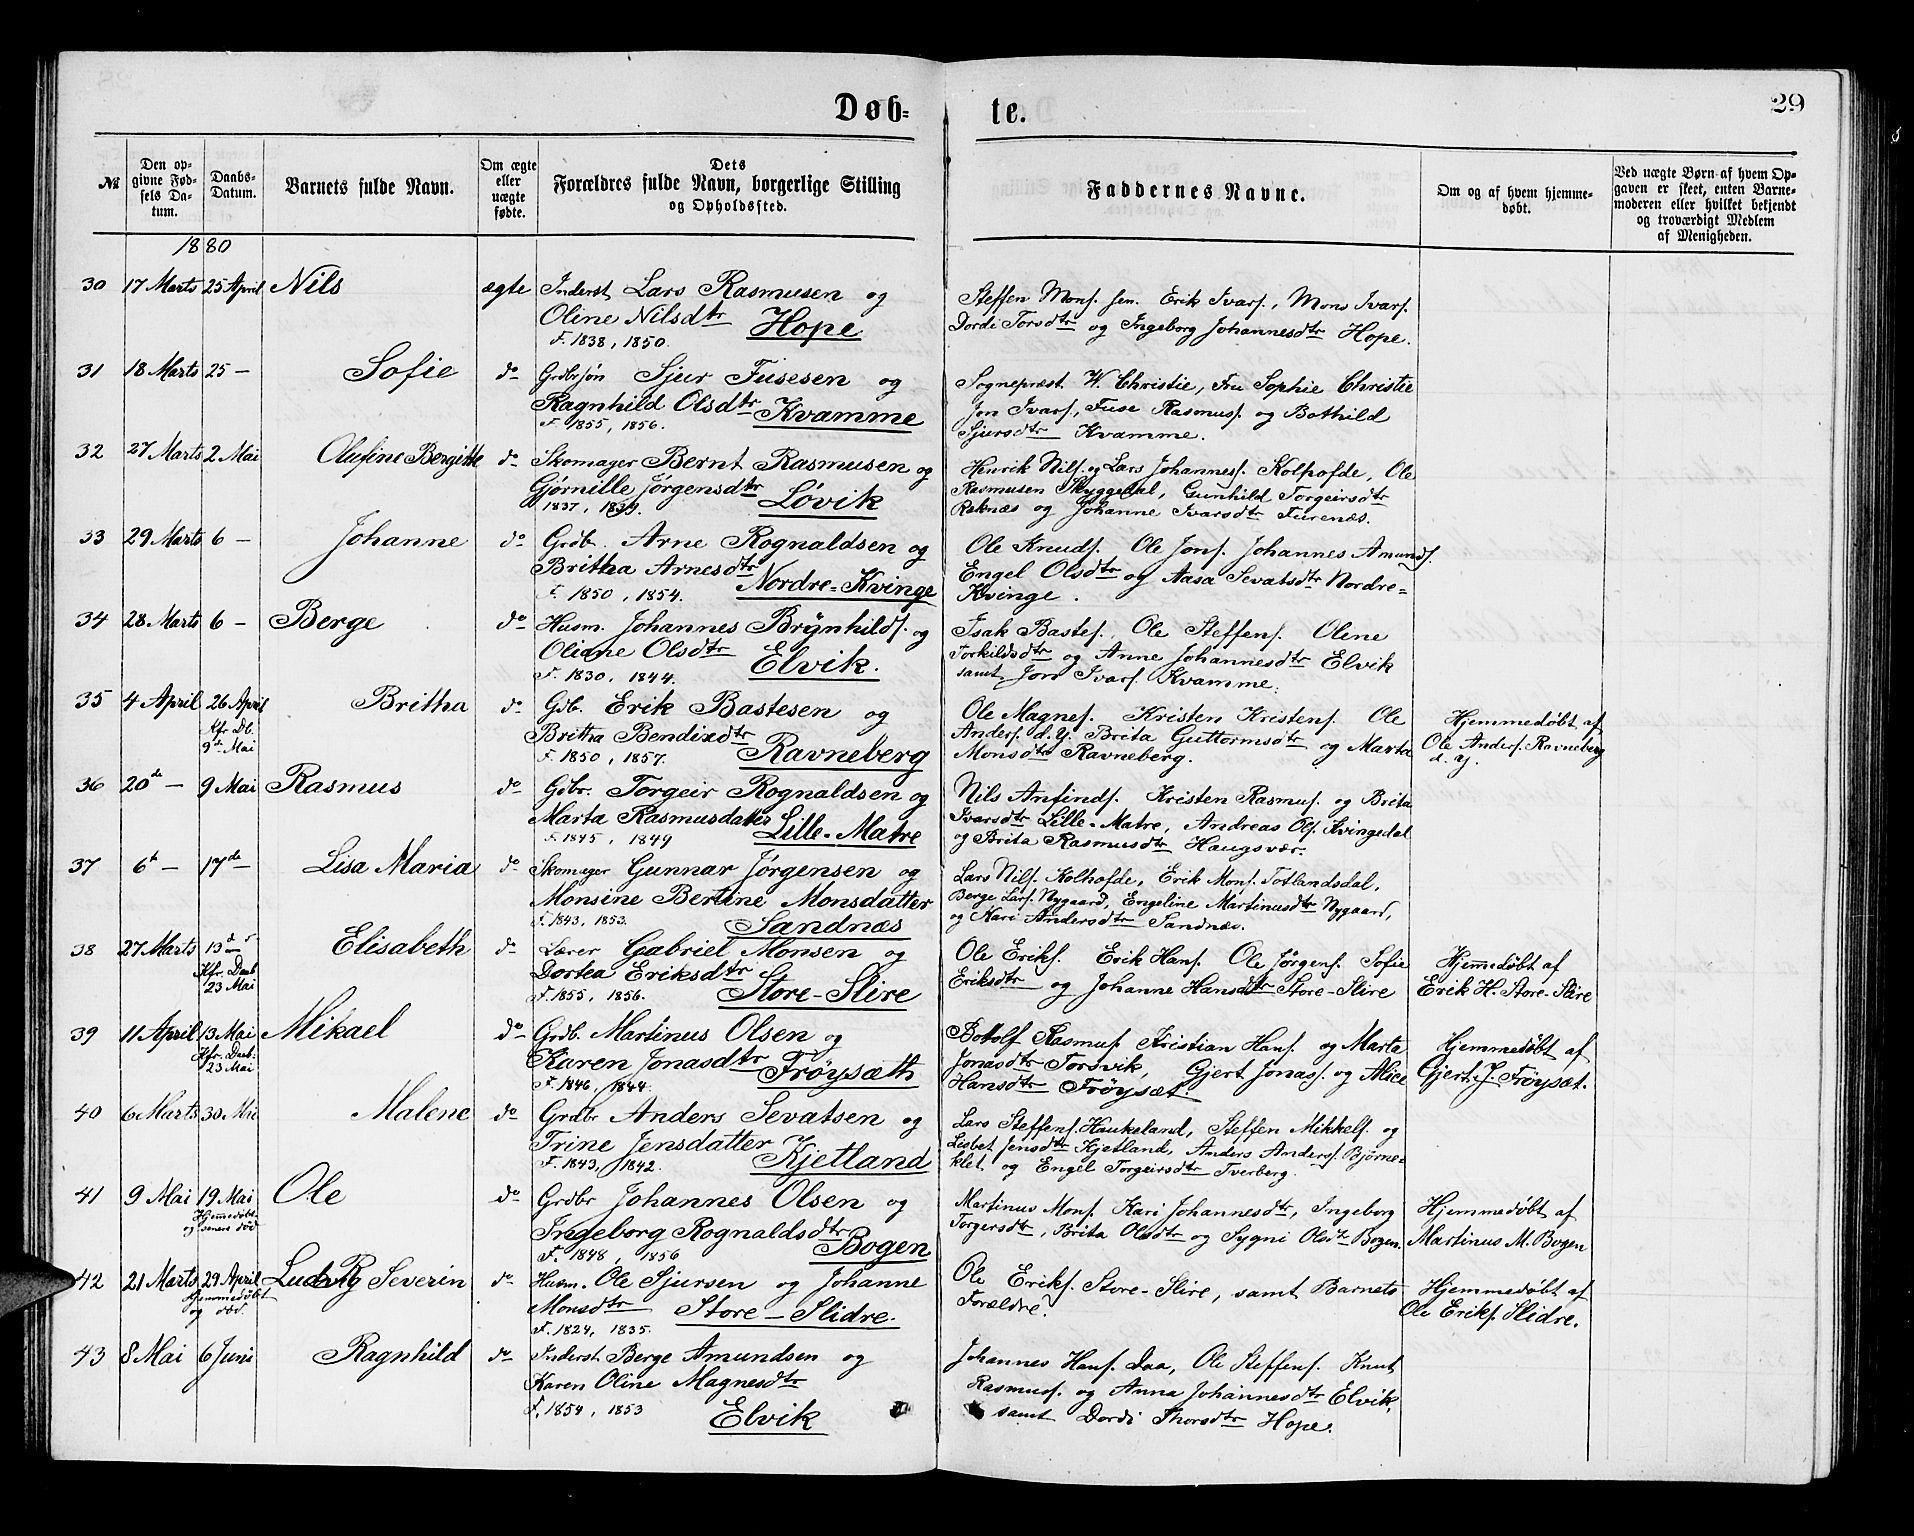 Døb=
te.
29
№
Den op-
givne Fød-
sels Da-
tum.
Daabs-
Datum.
Barnets fulde Navn.
Om ægte
eller
uægte
fødte.
Dets
Forældres fulde Navn, borgerlige Stilling
og Opholdssted.
Faddernes Navne.
Om og af hvem hjemme-
døbt.
Ved uægte Børn af hvem Op-
gaven er skeet, enten Barne-
moderen eller hvilket bekjendt
og troværdigt Medlem
af Menigheden.
1880
30 17 Marts 25 April Nils ægte Inderst Lars Rasmusen og
Oline Nilsdtr Hope
F. 1838, 1850.
Steffen Mons. sen. Erik Ivars., Mons Ivars.
Dordi Torsdtr og Ingeborg Johannesdtr Hope.
31 18 Marts 25 — Sofie do Grdbrsøn Sjur Fusesen og
Ragnhild Olsdtr Kvamme
F. 1855, 1856.
Sognepræst W. Christie, Fru Sophie Christie
Jon Ivars., Fuse Rasmus. og Bothild
Sjursdtr Kvamme.
32 27 Marts 2 Mai Olufine Bergitte do Skomager Bernt Rasmusen og
Gjørnille Jørgensdtr Løvik
1837, 1839.
Henrik Nils. og Lars Johannes. Kolhofde, Ole
Rasmusen Skyggedal, Gunhild Torgeirsdtr
Raknæs og Johanne Ivarsdtr Furenæs.
33 29 Marts 6 — Johanne do Grdb. Arne Rognaldsen og
Britha Arnesdtr Nordre-Kvinge
F. 1850, 1854.
Ole Knuds. Ole Jons. Johannes Amunds.
Engel Olsdtr og Aasa Sevatsdtr Nordre=
Kvinge.
34 28 Marts 6 — Berge do Husm. Johannes Brynhilds. og
Oliane Olsdtr Elvik.
F. 1830, 1844.
Isak Bastes., Ole Steffens. Olene
Torkildsdtr og Anne Johannesdtr Elvik
samt Jon Ivars. Kvamme.
35 4 April 26 April Britha do Gdb. Erik Bastesen og
Kfr Db.
9de Mai
Britha Bendixdtr Ravneberg
F. 1850, 1857.
Ole Magnes. Kristen Kristens. Ole
Anders. d. Y. Brita Guttormsdtr og Marta
Monsdtr Ravneberg.
Hjemmedøbt af
Ole Anders. Ravneberg
d. y.
36 20de — 9 Mai Rasmus do Gdbr. Torgeir Rognaldsen og
Marta Rasmusdatter Lille-Matre
F. 1845, 1849
Nils Anfinds. Kristen Rasmus. og Brita
Ivarsdtr Lille-Matre, Andreas Ols. Kvingedal
og Brita Rasmusdtr Haugsvær.
37 6te — 17de Lisa Maria do Skomager Gunnar Jørgensen og
Monsine Bertine Monsdatter
F. 1843, 1853. Sandnæs
Lars Nils. Kolhofde, Erik Mons. Totlandsdal,
Berge Lars. Nygaard, Engeline Martinusdtr Nygaard,
og Kari Andersdtr Sandnæs.
38 27 Marts 13de 5 Elisabeth do Lærer Gabriel Monsen og
Kfr. Daab
23 Mai
Dortea Eriksdtr Store-Slire
F. 1855, 1856.
Ole Eriks. Erik Hans. Ole Jørgens. Sofie
Eriksdtr og Johanne Hansdtr Store-Slire
Hjemmedøbt af
Erik H. Store-Slire
39 11 April 13 Mai Mikael do Grdb. Martinus Olsen og
Kfr. Daab:
23 Mai
Karen Jonasdtr Frøysæth
F. 1846, 1844.
Botolf Rasmus. Kristian Hans. og Marta
Jonasdtr Torsvik, Gjert Jonas. og Alice
Hansdtr Frøysæt.
Hjemmedøbt af
Gjert J. Frøysæt.
40 6 Marts 30 Mai Malene do Grdbr Anders Sevatsen og
Trine Jensdatter Kjetland
F. 1843, 1842.
Lars Steffens. Haukeland, Steffen Mikkels. og
Lisbet Jensdtr Kjetland, Anders Anders. Bjørne=
klet og Engel Torgeirsdtr Tverberg.
41 9 Mai 19 Mai Ole do Grdbr Johannes Olsen og
Hjemmedøbt
og senere død
Ingeborg Rognaldsdtr Bogen
F. 1848, 1856
Martinus Mons. Kari Johannesdtr, Ingeborg
Torgersdtr, Brita Olsdtr og Sygni Olsdtr Bogen.
Hjemmedøbt af
Martinus M. Bogen
42 21 Marts 29 April Ludvig Severin do Husm. Ole Sjursen og Johanne
Hjemmedøbt
og død.
Monsdtr Store-Slidre.
F. 1824, 1835.
Ole Eriks. Store-Slire, samt Barnets
Forældre.
Hjemmedøbt af
Ole Eriks. Slidre.
43 8 Mai 6 Juni Ragnhild do Inderst Berge Amundsen og
Karen Oline Magnesdtr
F. 1854, 1853 Elvik
Johannes Hans. Daa, Ole Steffens. Knut
Rasmus. og Anna Johannesdtr Elvik,
samt Dordi Thorsdtr Hope.